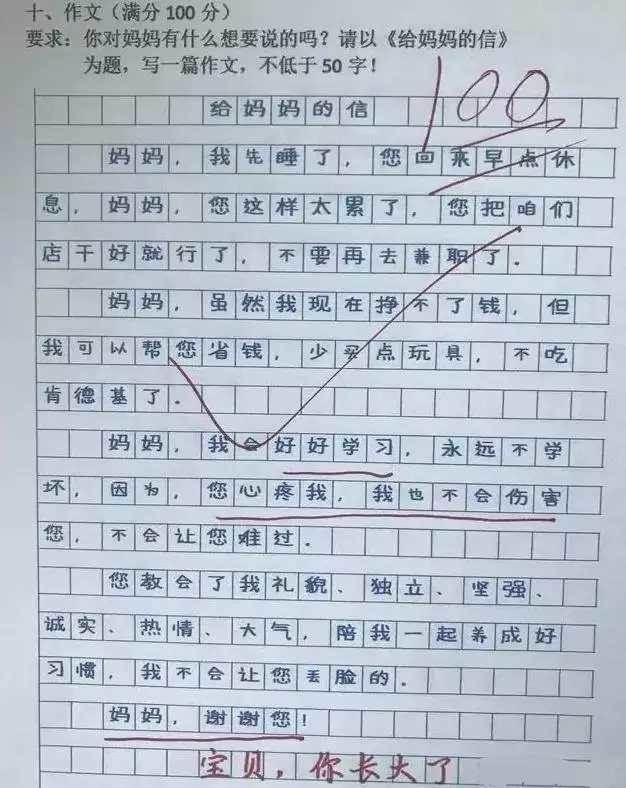 十、作文（满分 100 分）
要求：你对妈妈有什么想要说的吗？请以《给妈妈的信》
为题，写一篇作文，不低于 50 字！
100
给妈妈的信
妈妈，我先睡了，您回来早点休
息，妈妈，您这样太累了，您把咱们
店干好就行了，不要再去兼职了．
妈妈，虽然我现在挣不了钱，但
我可以帮您省钱，少买点玩具，不吃
肯德基了．
妈妈，我会好好学习，永远不学
坏，因为，您心疼我，我也不会伤害
您，不会让您难过．
您教会了我礼貌、独立、坚强、
诚实、热情、大气，陪我一起养成好
习惯，我不会让您丢脸的．
妈妈，谢谢您！
宝贝，你长大了